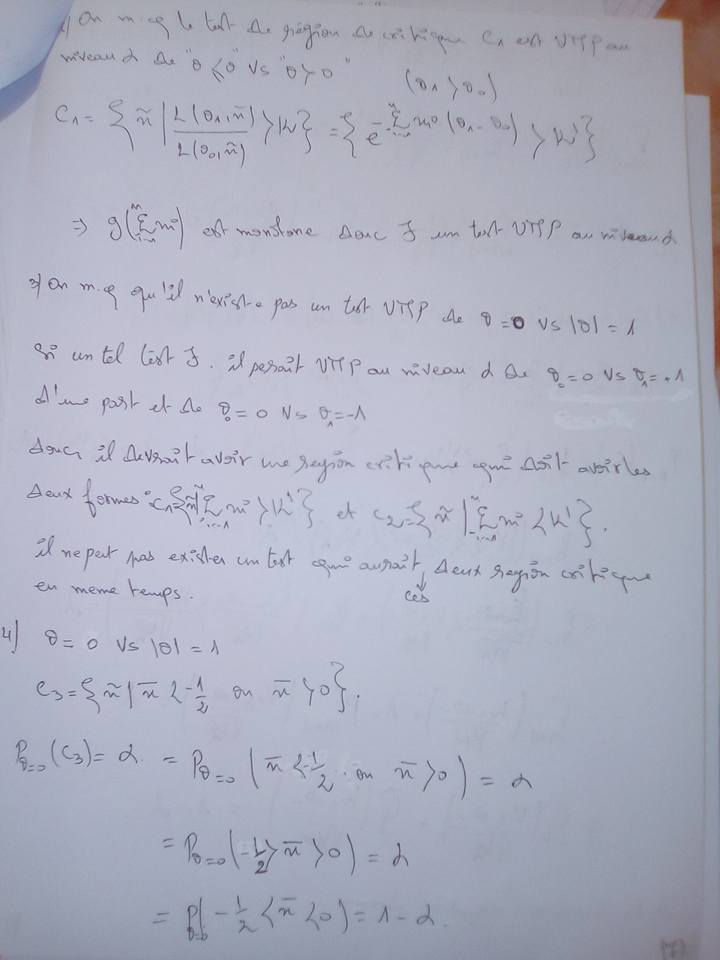 2) On m.q le test de région de critique C₁ est UMP au
niveau α de "θ ⩽ 0" vs "θ > 0"
(θ₁ > θ₀)
C₁ = { x̃ | L(θ₁, x̃) / L(θ₀, x̃) > K } = { e^{-Σ_{i=1}^{n} xi (θ₁ - θ₀)} > K' }
⇒ g(Σ_{i=1}^{n} xi) est monotone donc ∃ un test UMP au niveau α
3) On m.q qu'il n'existe pas un test UMP de θ = 0 vs |θ| = 1
Si un tel test ∃. il serait UMP au niveau α de θ₀ = 0 vs θ₁ = +1
d'une part et de θ₀ = 0 vs θ₁ = -1
donc il devrait avoir une region critique qui doit avoir les
deux formes : C₁ = { x̃ | Σ_{i=1}^{n} xi > K' } et C₂ = { x̃ | Σ_{i=1}^{n} xi < K' }.
il ne peut pas exister un test qui aurait deux region critique
en meme temps. ces
4) θ = 0 vs |θ| = 1
C₃ = { x̃ | x̄ < -1/2 ou x̄ > 0 }.
P_{θ=0}(C₃) = α. = P_{θ=0}( x̄ < -1/2 . ou x̄ > 0 ) = α
= P_{θ=0}( -1/2 > x̄ > 0 ) = α
= P_{θ=0}( -1/2 < x̄ < 0 ) = 1 - α.